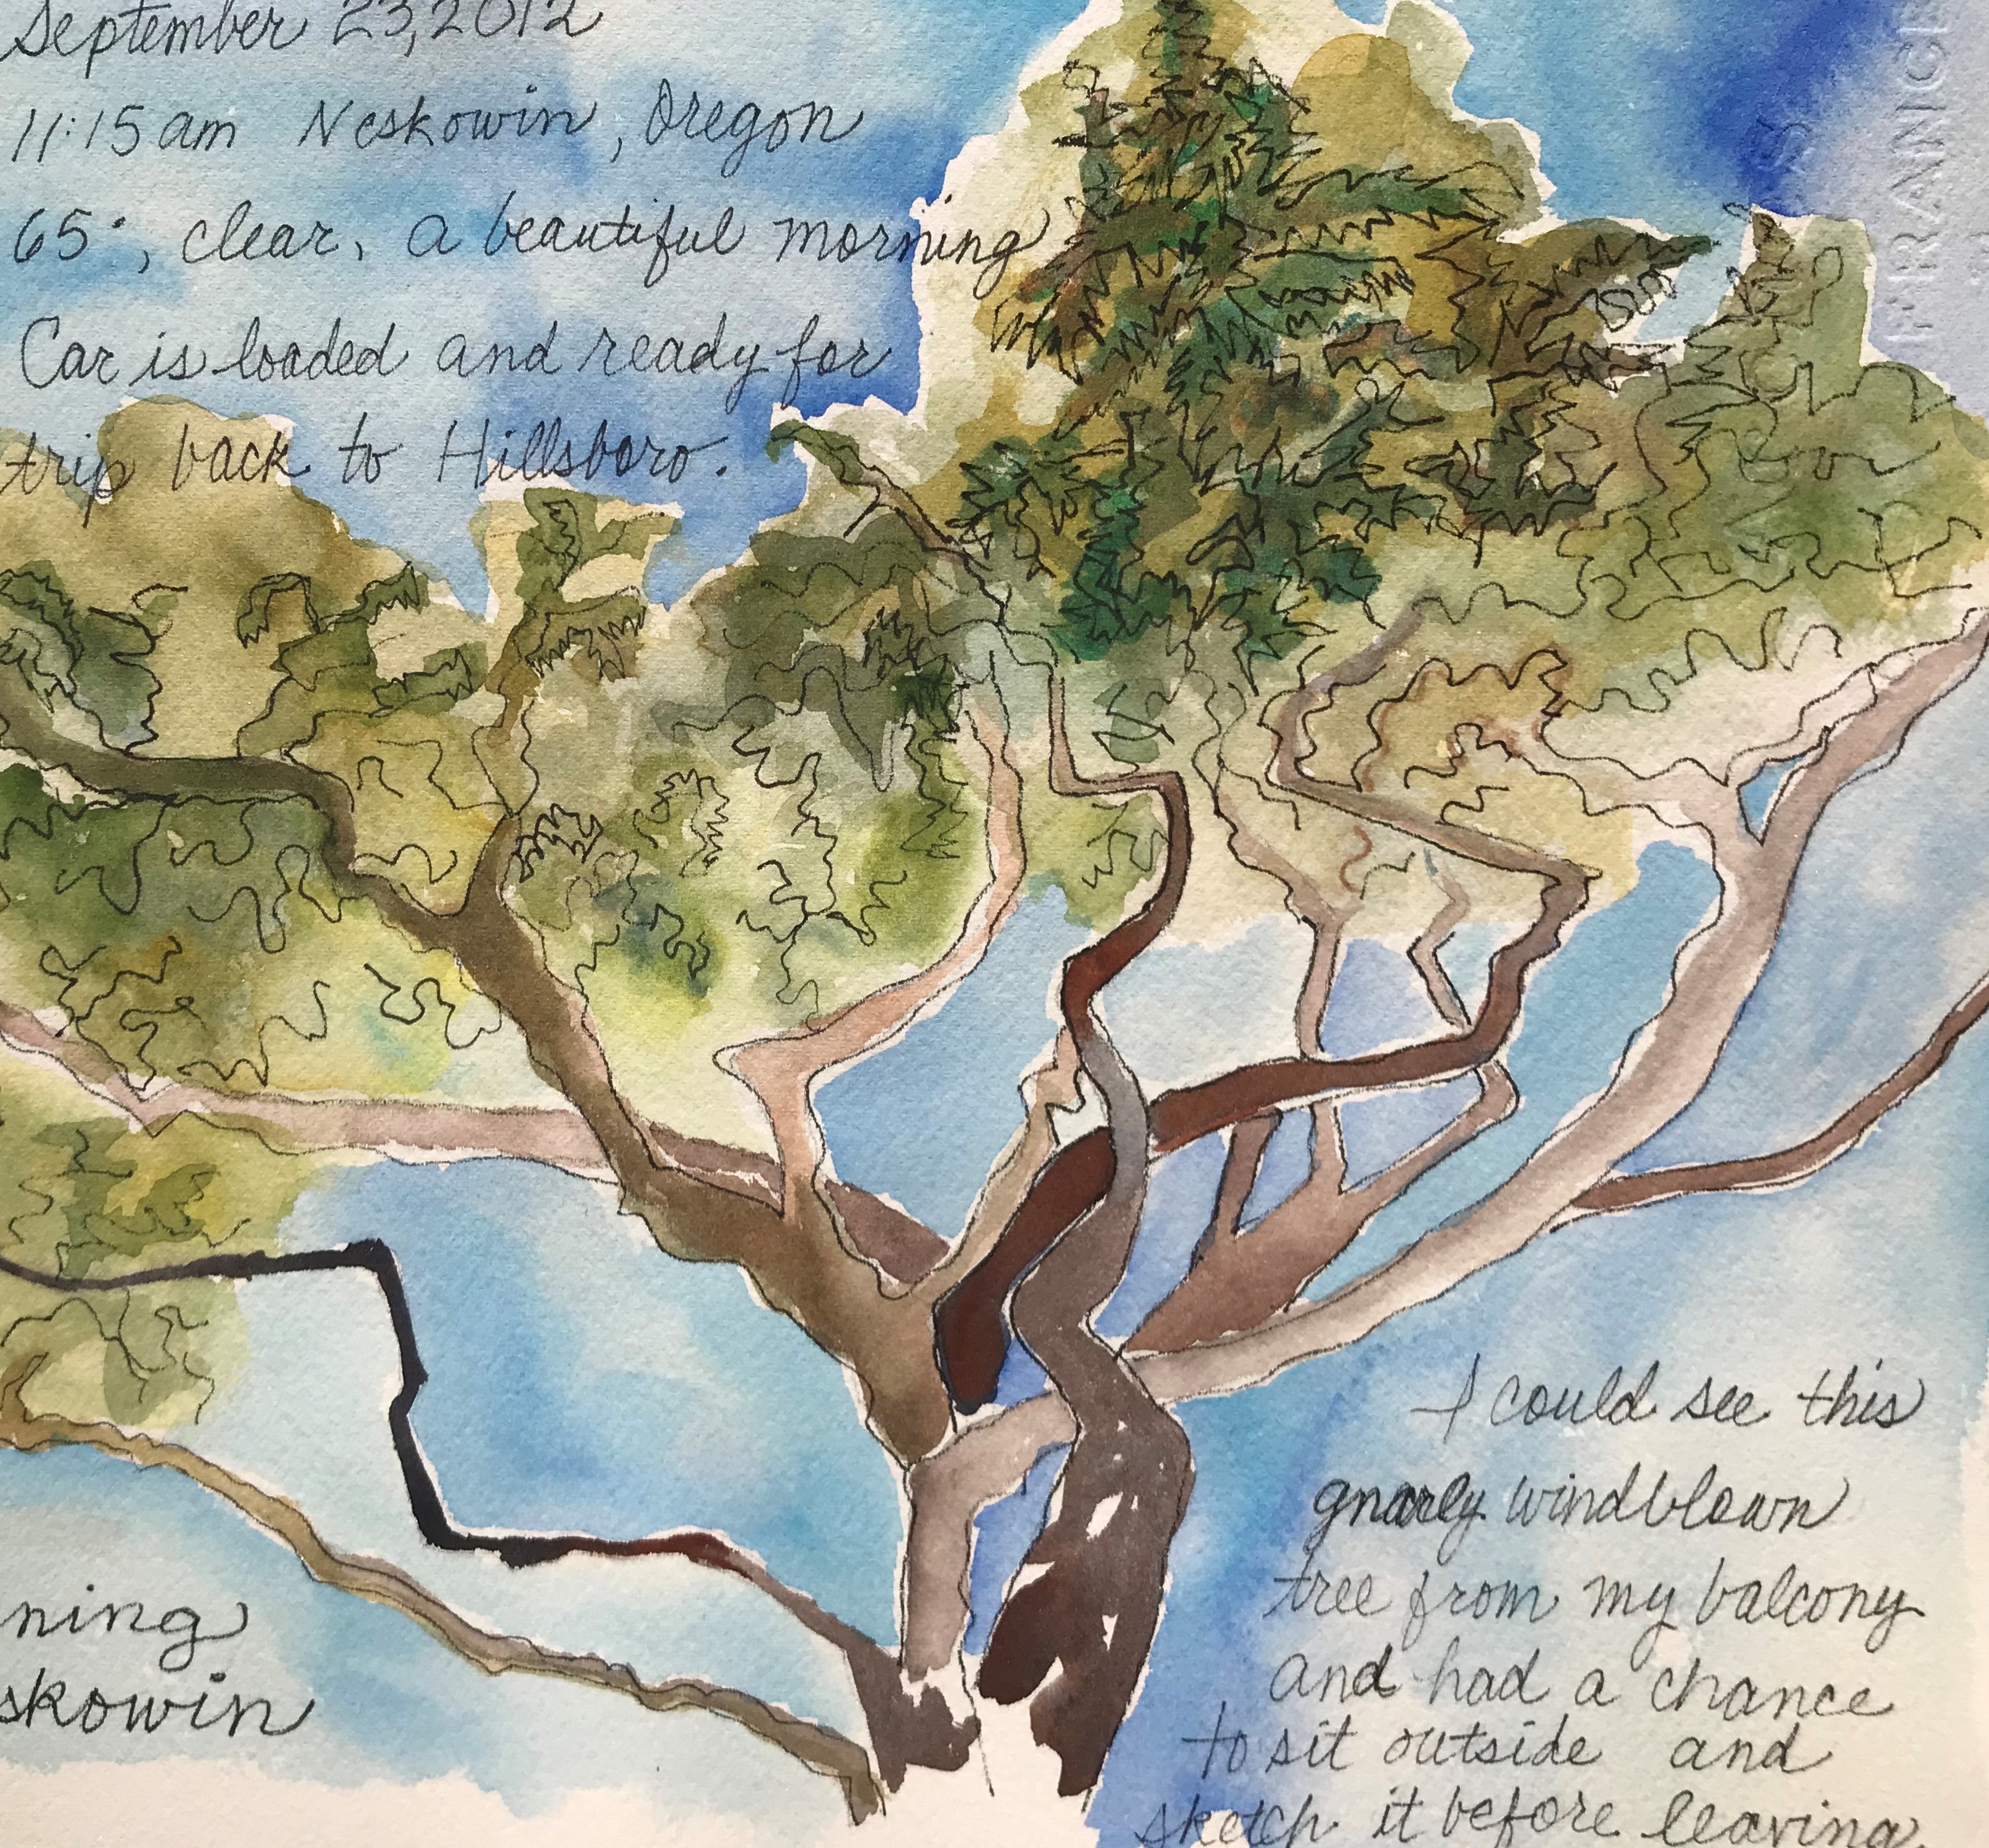 September 23, 2012
11:15 am Neskowin, Oregon
65°, clear, a beautiful morning
Car is loaded and ready for
trip back to Hillsboro.
FRANCE
I could see this
gnarly windblown
tree from my balcony
and had a chance
to sit outside and
sketch it before leaving
ning
skowin